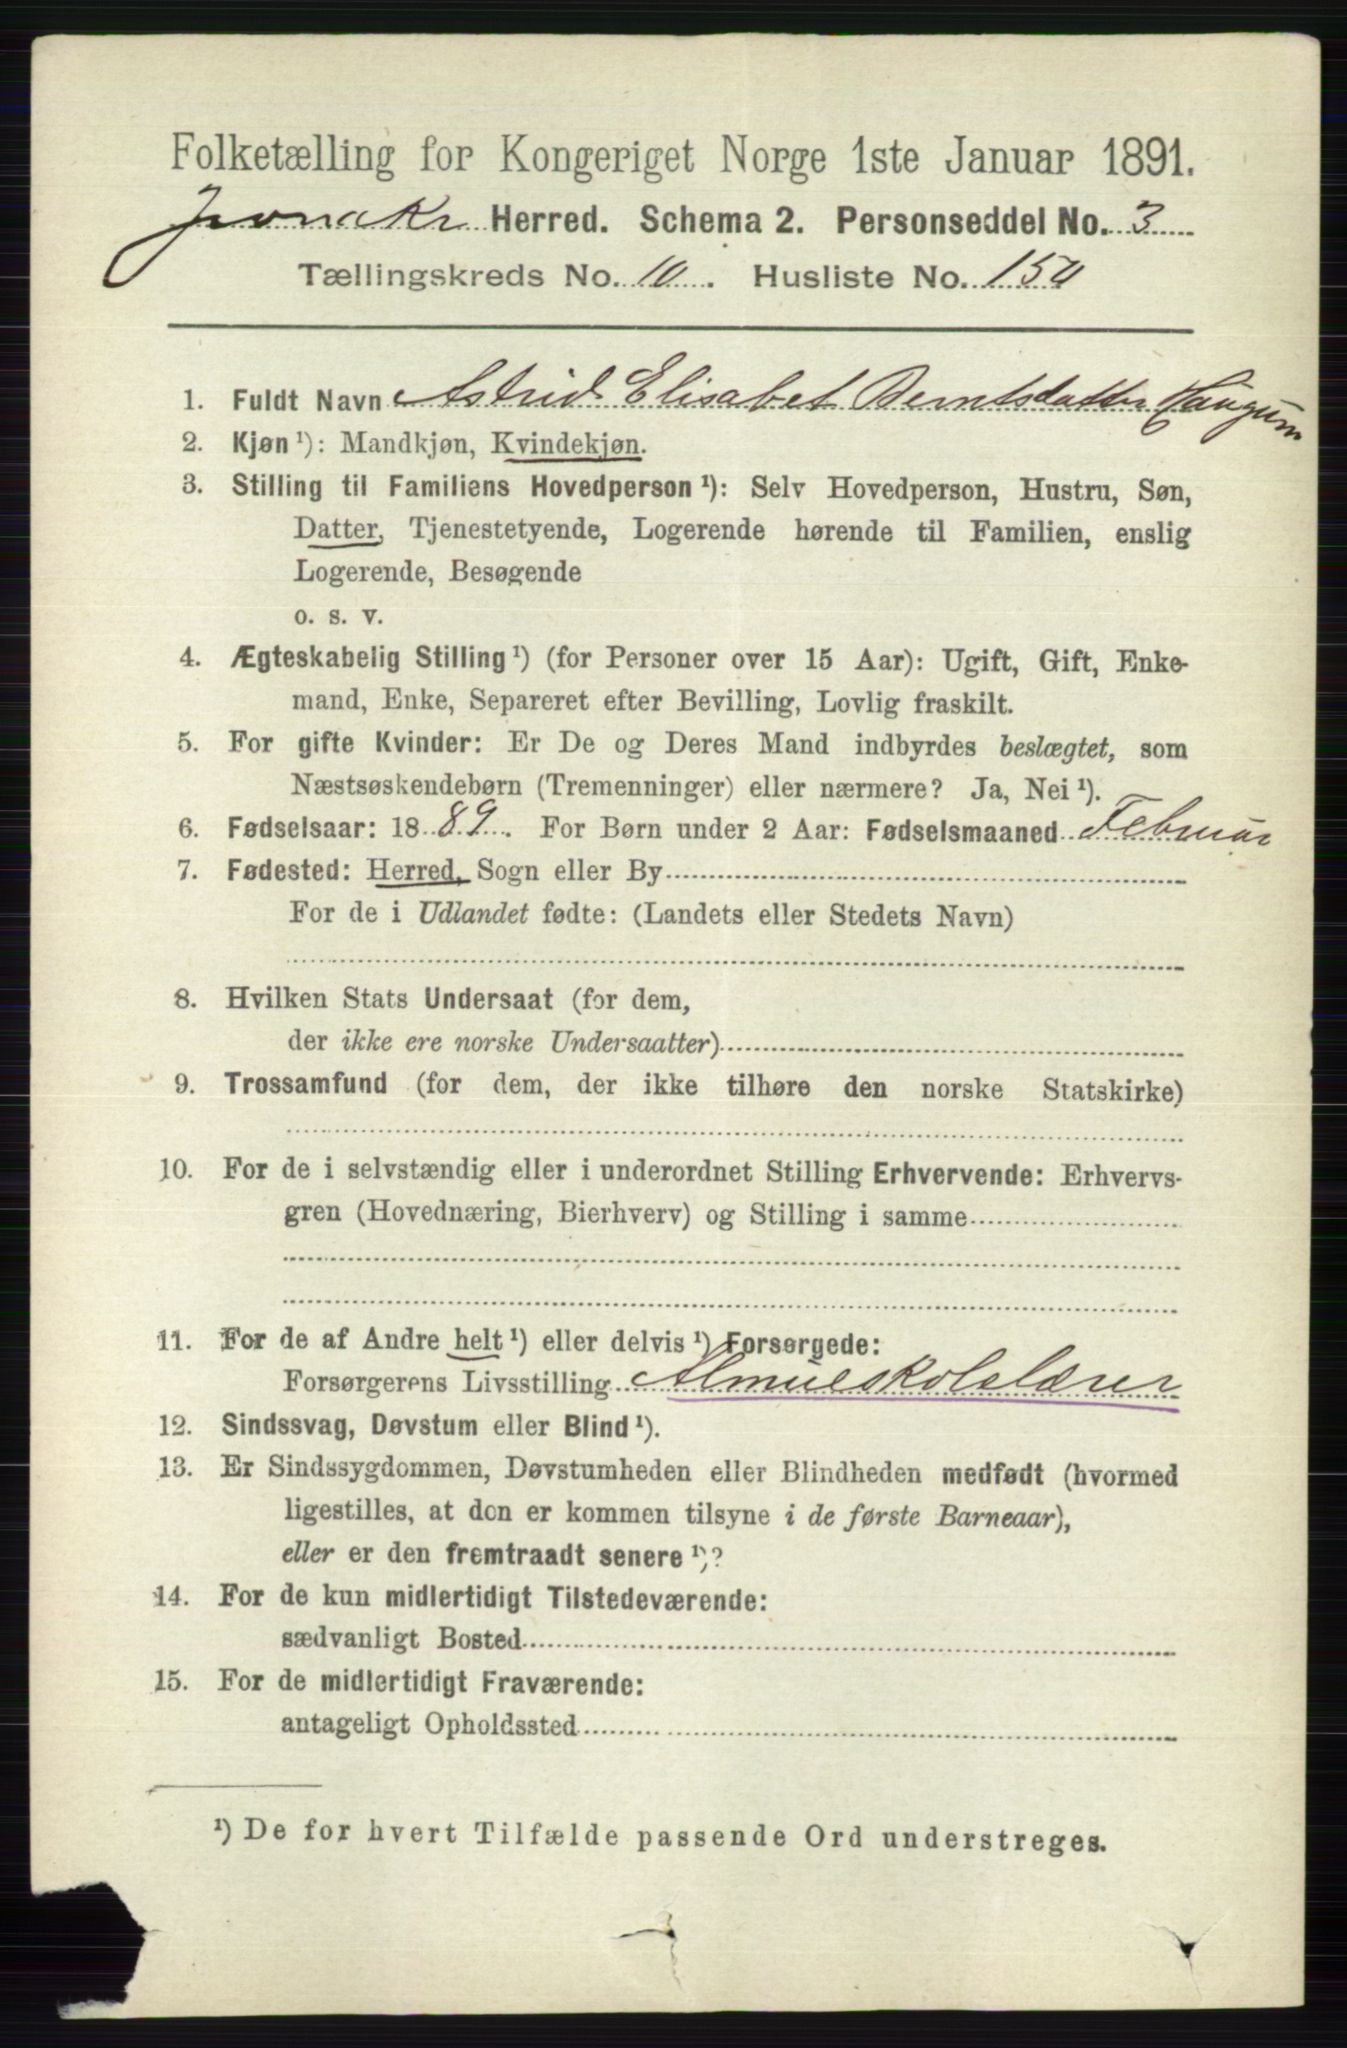 Folketælling for Kongeriget Norge 1ste Januar 1891.
Jevnaker Herred. Schema 2. Personseddel No. 3
Tællingskreds No. 10. Husliste No. 150
1. Fuldt Navn Astrid Elisabet Berntsdatter Haugum
2. Kjøn ¹): Mandkjøn, Kvindekjøn.
3. Stilling til Familiens Hovedperson ¹): Selv Hovedperson, Hustru, Søn,
Datter, Tjenestetyende, Logerende hørende til Familien, enslig
Logerende, Besøgende
o. s. v.
4. Ægteskabelig Stilling ¹) (for Personer over 15 Aar): Ugift, Gift, Enke-
mand, Enke, Separeret efter Bevilling, Lovlig fraskilt.
5. For gifte Kvinder: Er De og Deres Mand indbyrdes beslægtet, som
Næstsøskendebørn (Tremenninger) eller nærmere? Ja, Nei ¹).
6. Fødselsaar: 1889. For Børn under 2 Aar: Fødselsmaaned Februar
7. Fødested: Herred, Sogn eller By
For de i Udlandet fødte: (Landets eller Stedets Navn)
8. Hvilken Stats Undersaat (for dem,
der ikke ere norske Undersaatter)
9. Trossamfund (for dem, der ikke tilhøre den norske Statskirke)
10. For de i selvstændig eller i underordnet Stilling Erhvervende: Erhvervs-
gren (Hovednæring, Bierhverv) og Stilling i samme
11. For de af Andre helt ¹) eller delvis ¹) Forsørgede:
Forsørgerens Livsstilling Almueskolelærer
12. Sindssvag, Døvstum eller Blind ¹).
13. Er Sindssygdommen, Døvstumheden eller Blindheden medfødt (hvormed
ligestilles, at den er kommen tilsyne i de første Barneaar),
eller er den fremtraadt senere ¹)?
14. For de kun midlertidigt Tilstedeværende:
sædvanligt Bosted
15. For de midlertidigt Fraværende:
antageligt Opholdssted
¹) De for hvert Tilfælde passende Ord understreges.